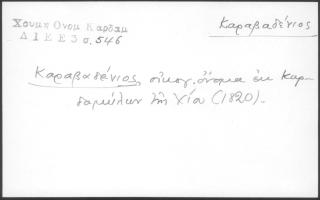 Χουμη Ονομ Καρδαμ
ΔΙΕΕ3 σ.546
Καραβαδένιος
Καραβαδένιος οἰκογ. ὄνομα ἐκ Καρ-
δαμύλων τῆς Χίου (1820).